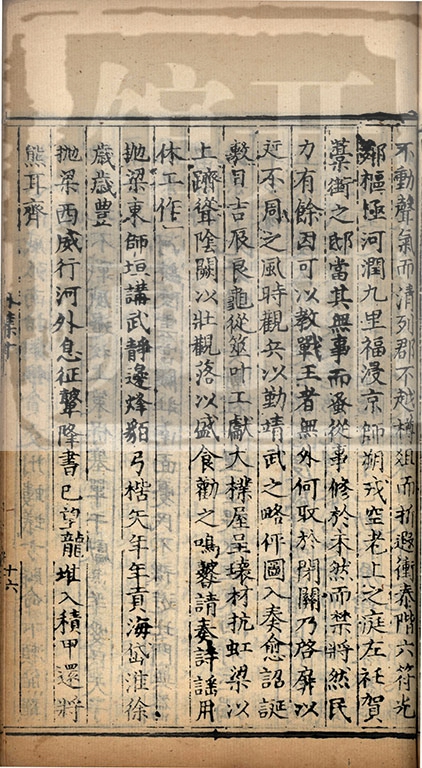 不動聲氣而清列郡不越樽俎而折遐衝泰階六符光
鄰樞極河潤九里福浸京師朔戎空老上之庭左衽賀
藁街之邸當其無事而蚤從事修於未然而禁將然民
力有餘因可以教戰王者無外何取於閉關乃啓扉以
延不周之風時觀兵以勤靖武之略伻圖入奏愈詔誕
敷日吉辰良龜從筮叶工獻大樸屋呈瓌材抗虹梁以
上躋聳陰闕以壯觀落以盛食勸之鳴鼛請奏詩謡用
休工作
拋梁東師垣講武靜邊烽貊弓楛矢年年貢海岱淮徐
歲歲豐
拋梁西威行河外息征鼙降書已望龍堆入積甲還將
熊耳齊
十六